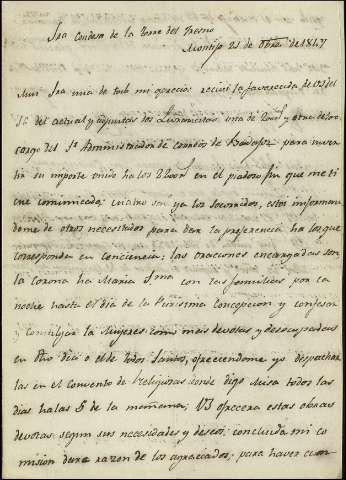 Sra Condesa de la Torre del Fresno
Montijo 21 de Obre de 1847
Mui Sra mia de todo mi aprecio: recivi la favorecida de VS del
15 del actual y adjuntas dos Libramientos uno de 200 rs y otro de
cargo del Sr Administrador de correos de Badajoz para inver
tir su importe unido ha los 2200 rs en el piadoso fin que me ti
ene comunicado: cuatro son ya los socorridos, estoi informan
dome de otros necesitados para dar la preferencia ha los que
corresponda en conciencia: las oraciones encargadas son
la corona ha Maria Sma con sus familias por la
noche hasta el dia de la Purisima Concepcion y confesar
y comulgar las Mujeres como mas devotas y desocupadas
en dho dia o el de todos Santos, ofreciendome yo despachar
las en el Convento de Religiosas donde digo Misa todos los
dias ha las 5 de la mañana; VS ofrecera estas obras
devotas segun sus necesidades y deseos: concluida mi co
mision daré razon de los agraciados, para haver cum